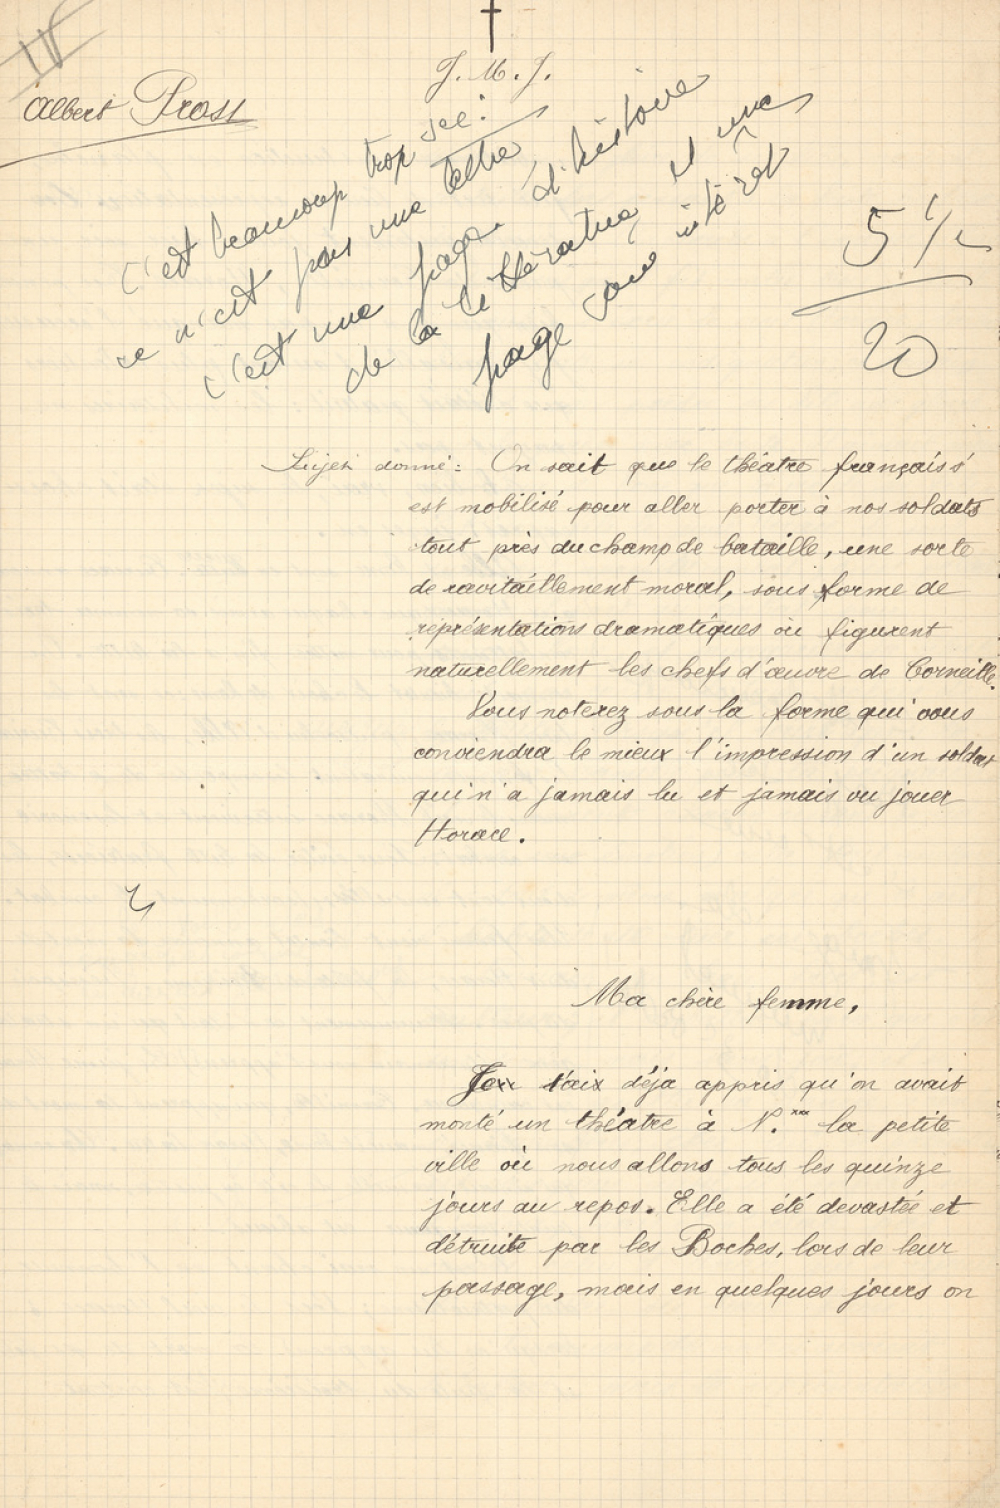 IV
J. M. J.
Albert Prost
C'est beaucoup trop sec !
ce n'est pas une lettre
c'est une page d'histoire
de la littérature et une
page sans intérêt
5 1/2
20
Sujet donné : On sait que le théatre français
est mobilisé pour aller porter à nos soldats
tout près du champ de bataille, une sorte
de ravitaillement moral, sous forme de
représentations dramatiques où figurent
naturellement les chefs d'œuvre de Corneille.
Vous noterez sous la forme qui vous
conviendra le mieux l'impression d'un soldat
qui n'a jamais lu et jamais vu jouer
Horace.
Ma chère femme,
t'aix déja appris qu'on avait
monté un théatre à N.*** la petite
ville où nous allons tous les quinze
jours au repos. Elle a été devastée et
détruite par les Boches, lors de leur
passage, mais en quelques jours on